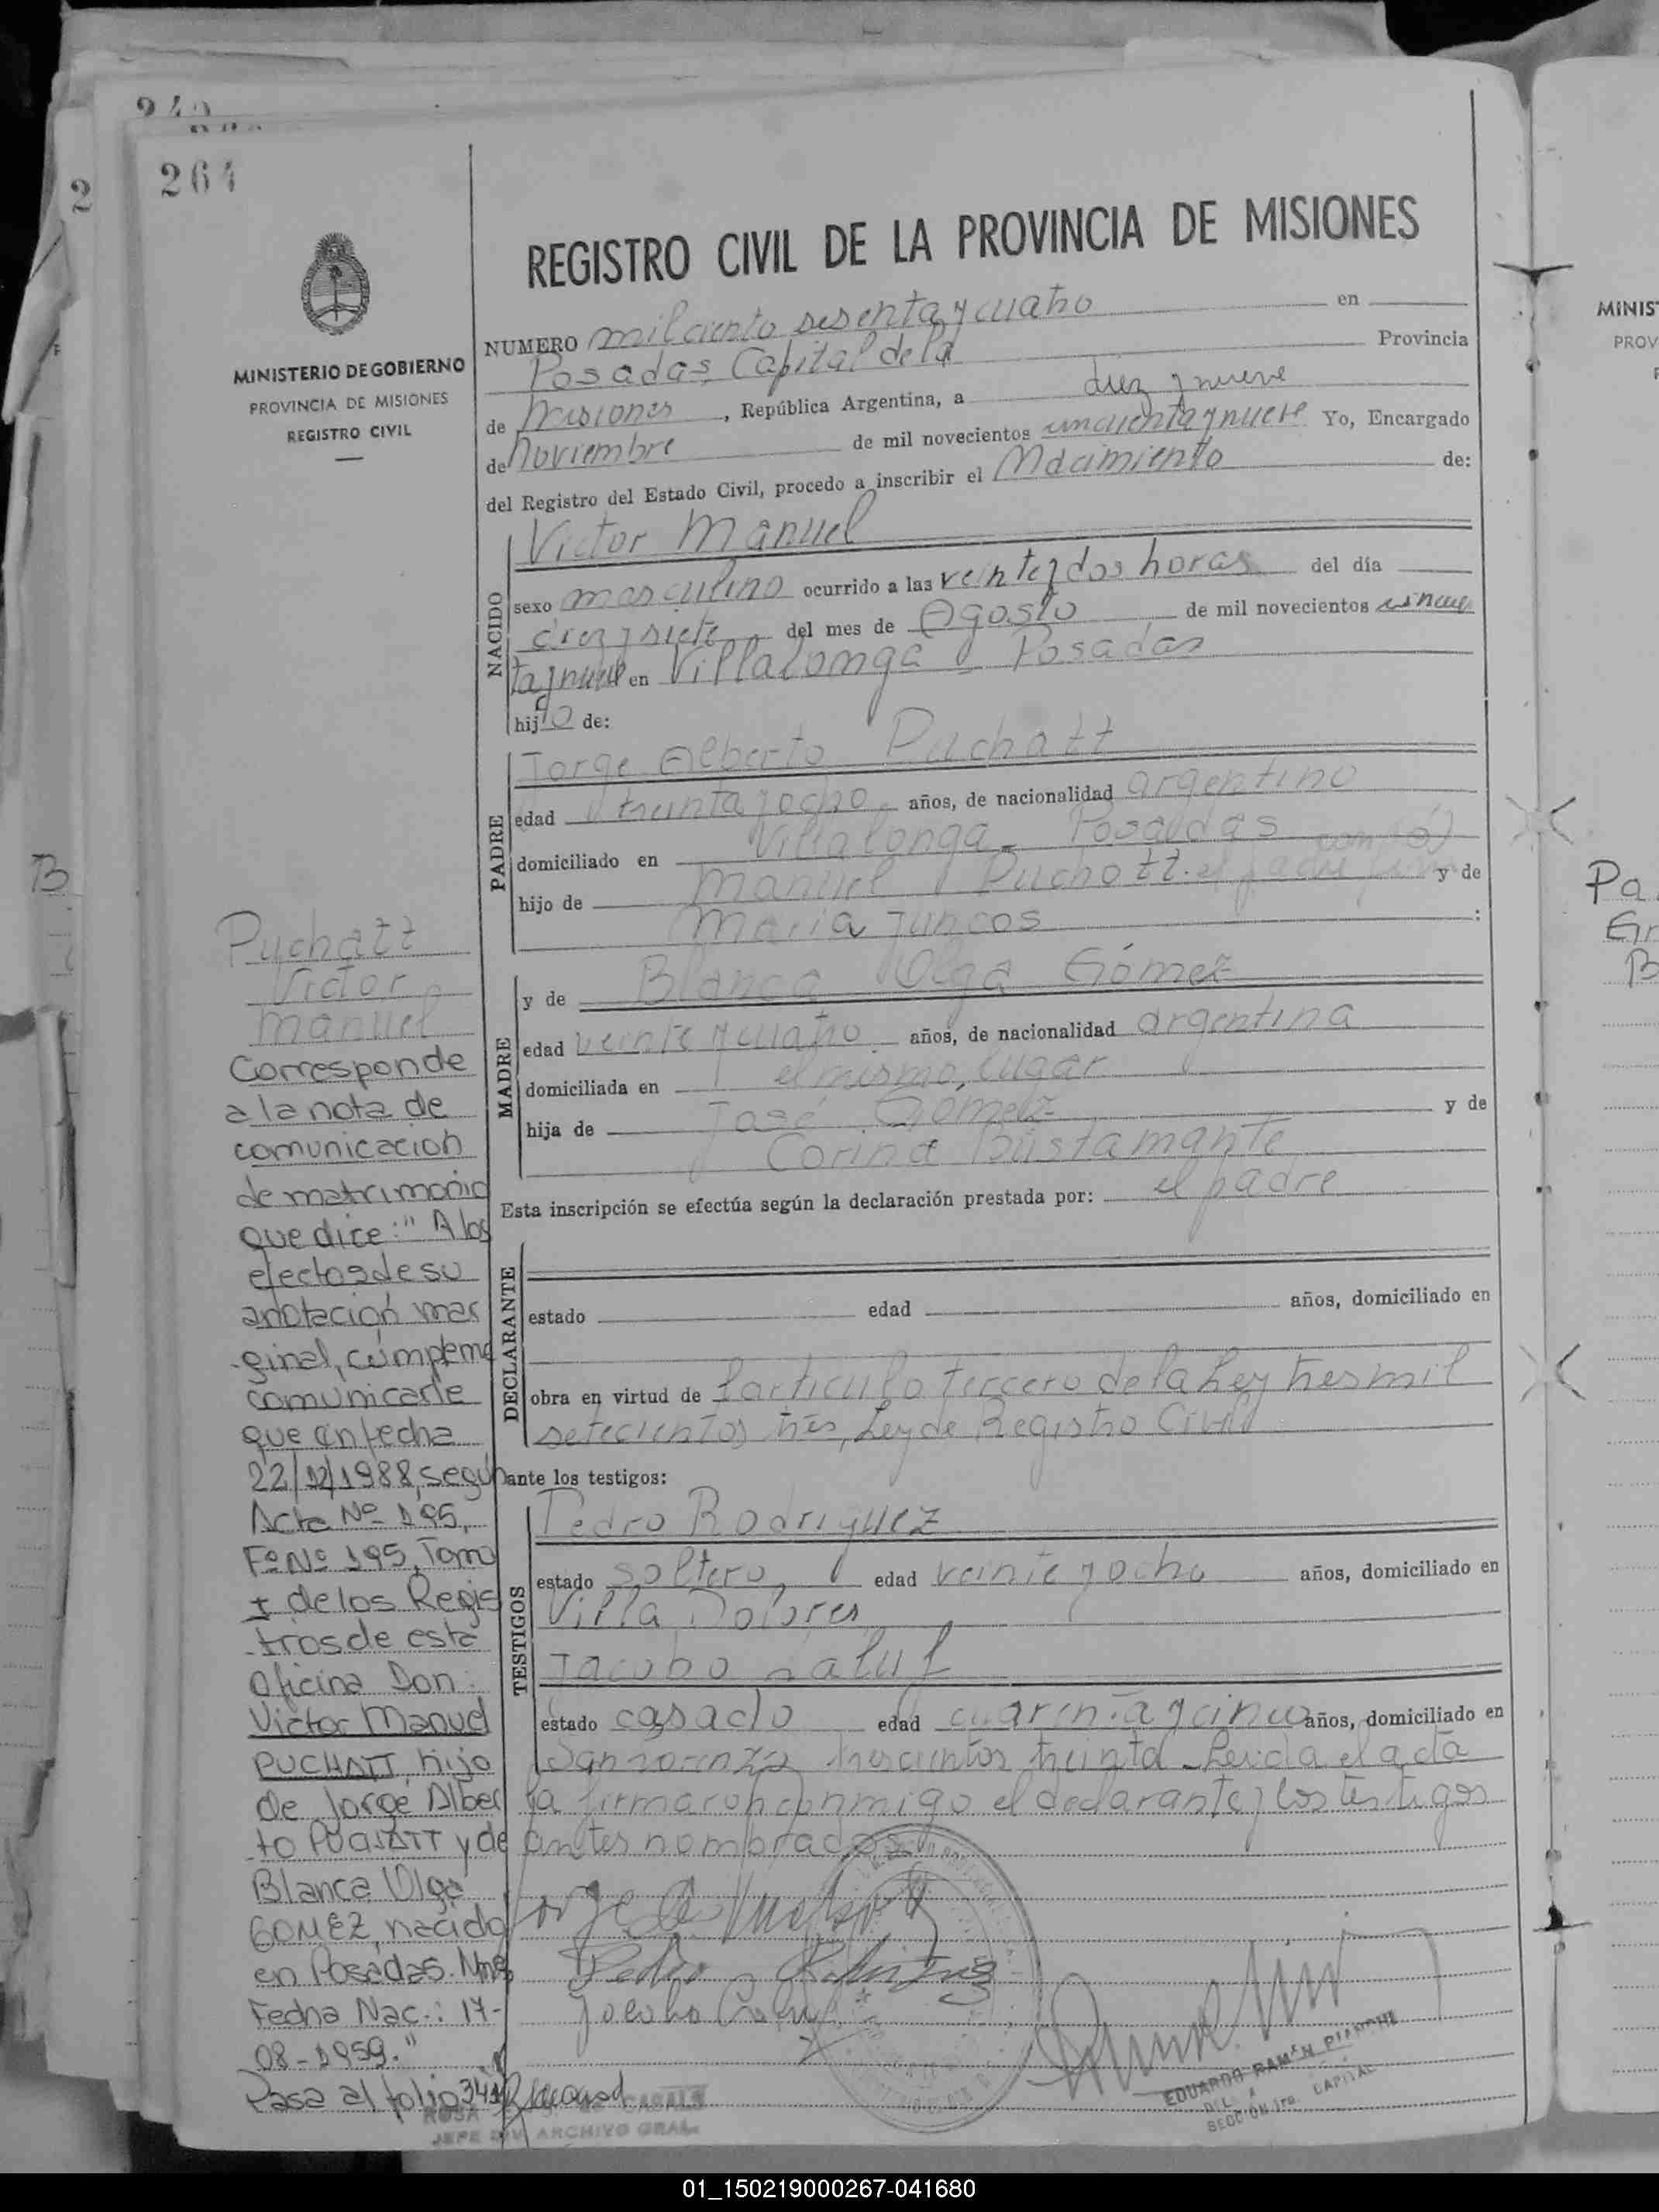 264
MINISTERIO DE GOBIERNO
PROVINCIA DE MISIONES
REGISTRO CIVIL
REGISTRO CIVIL DE LA PROVINCIA DE MISIONES
NUMERO mil ciento sesenta y cuatro en
Posadas, Capital de la Provincia
de Misiones, República Argentina, a diez y nueve
de Noviembre de mil novecientos cincuenta y nueve Yo, Encargado
del Registro del Estado Civil, procedo a inscribir el Nacimiento de:
NACIDO
Victor Manuel
sexo masculino ocurrido a las veinte y dos horas del día
diez y siete del mes de Agosto de mil novecientos cincuen
ta y nueve en Villalonga - Posadas
hijo de:
PADRE
Jorge Alberto Puchatt
edad treinta y ocho años, de nacionalidad argentino
domiciliado en Villalonga - Posadas
hijo de Manuel Puchatt. el padre firma y de
Maria Juncos :
MADRE
y de Blanca Olga Gómez
edad veinte y cuatro años, de nacionalidad argentina
domiciliada en el mismo lugar
hija de José Gómez y de
Corina Bustamante
Esta inscripción se efectúa según la declaración prestada por: el padre
DECLARANTE
estado edad años, domiciliado en
obra en virtud de l articulo tercero de la Ley tres mil
setecientos tres, Ley de Registro Civil
ante los testigos:
TESTIGOS
Pedro Rodriguez
estado soltero, edad veinte y ocho años, domiciliado en
Villa Dolores
Jacobo Saluf
estado casado edad cuarenta y cinco años, domiciliado en
San Lorenzo trescientos treinta - Leida el acta
la firmaron conmigo el declarante y los testigos
antes nombrados
EDUARDO RAMÓN
SECCIÓN 1ra. CAPITAL
Puchatt
Victor
Manuel
Corresponde
a la nota de
comunicacion
de matrimonio
que dice: "A los
efectos de su
anotación mar
ginal, cúmpleme
comunicarle
que en fecha
22/12/1988, según
Acta Nº 195,
Fº Nº 195, Tomo
I de los Regis
tros de esta
Oficina Don
Victor Manuel
PUCHATT, hijo
de Jorge Alber
to PUCHATT y de
Blanca Olga
GOMEZ, nacido
en Posadas. Mnes
Fecha Nac.: 17-
08-1959."
Pasa al folio 341
ROSA CASALS
JEFE DIV. ARCHIVO GRAL.
MINIS
PROV
01_150219000267-041680